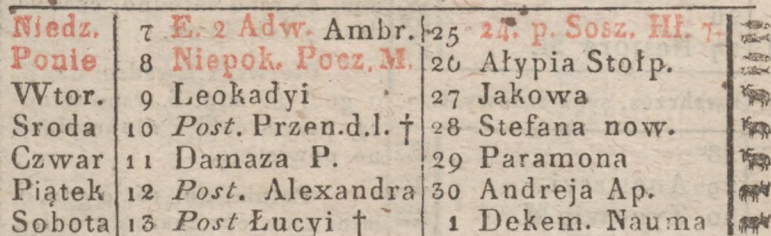 Niedz. 7 E. 2 Adw. Ambr. 25 24. p. Sosz. Hł. 7.
Ponie 8 Niepok. Pocz. M. 26 Ałypia Stołp.
Wtor. 9 Leokadyi 27 Jakowa
Sroda 10 Post. Przen.d.l. † 28 Stefana now.
Czwar 11 Damaza P. 29 Paramona
Piątek 12 Post. Alexandra 30 Andreja Ap.
Sobota 13 Post Łucyi † 1 Dekem. Nauma